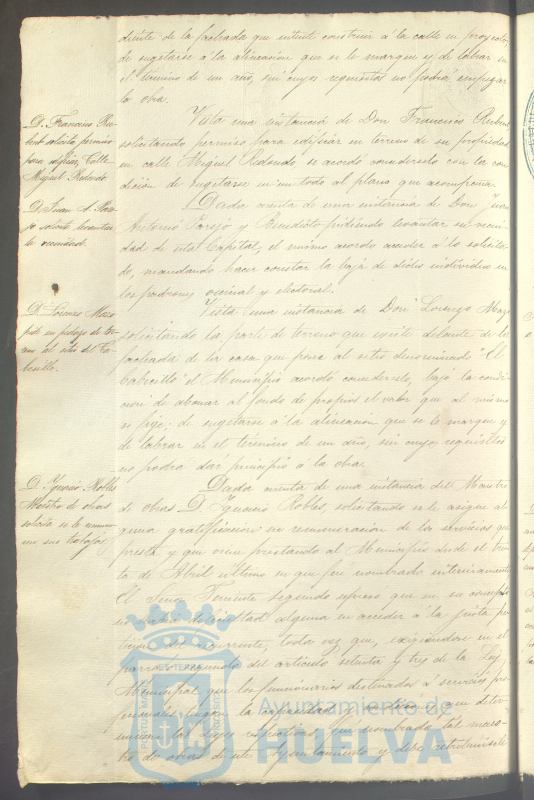 diente de la fachada que intente construir á la calle en proyecto,
de sugetarse á la alineacion que se le marque y de labrar en
el termino de un año, sin cuyos requisitos no podrá empezar
la obra.
D. Francisco Rubert
solicita permiso
para edificar Calle
Miguel Redondo
Vista una instancia de Don Francisco Rubert
solicitando permiso para edificar en terreno de su propiedad
en calle Miguel Redondo se acordó concederselo con la con-
dicion de sugetarse en un todo al plano que acompaña.
D. Juan A. Parejo
solicita levantar
la vecindad.
Dada cuenta de una instancia de Don Juan
Antonio Parejo y Benedicto pidiendo levantar su vecin-
dad de esta Capital, el mismo acordo acceder á lo solicita-
do, mandando hacer constar la baja de dicho individuo en
los padrones vecinal y electoral.
D. Lorenzo Mazo
pide un pedazo de ter-
reno al sitio del Ca-
becillo.
Vista una instancia de Don Lorenzo Mazo
solicitando la parte de terreno que existe delante de la
fachada de la casa que posee al sitio denominado "El
Cabecillo" el Municipio acordó concederselo, bajo la condi-
cion de abonar al fondo de propios el valor que al mismo
se fije; de sugetarse á la alineacion que se le marque y
de labrar en el termino de un año, sin cuyos requisitos
no podrá dar principio á la obra.
D. Ignacio Robles
Maestro de obras
solicita se le remune-
ren sus trabajos
Dada cuenta de una instancia del Maestro
de obras D. Ignacio Robles, solicitando se le asigne al-
guna gratificacion en remuneracion de los servicios que
presta y que viene prestando al Municipio desde el trein-
ta de Abril último en que fué nombrado interinamente
El Señor Teniente segundo espuso que en su concepto
no habia dificultad alguna en acceder á la justa pe-
ticion del recurrente, toda vez que, exigiendose en el
parrafo segundo del articulo setenta y tres de la Ley
Municipal que los funcionarios destinados á servicios pro-
fesionales tengan la capacidad y condiciones que deter-
minen las leyes respectivas fué nombrado tal maes-
tro de obras de este Ayuntamiento y debe retribuirsele
PORTUS MARIS ET TERRAE CUSTODIA
Ayuntamiento de
HUELVA